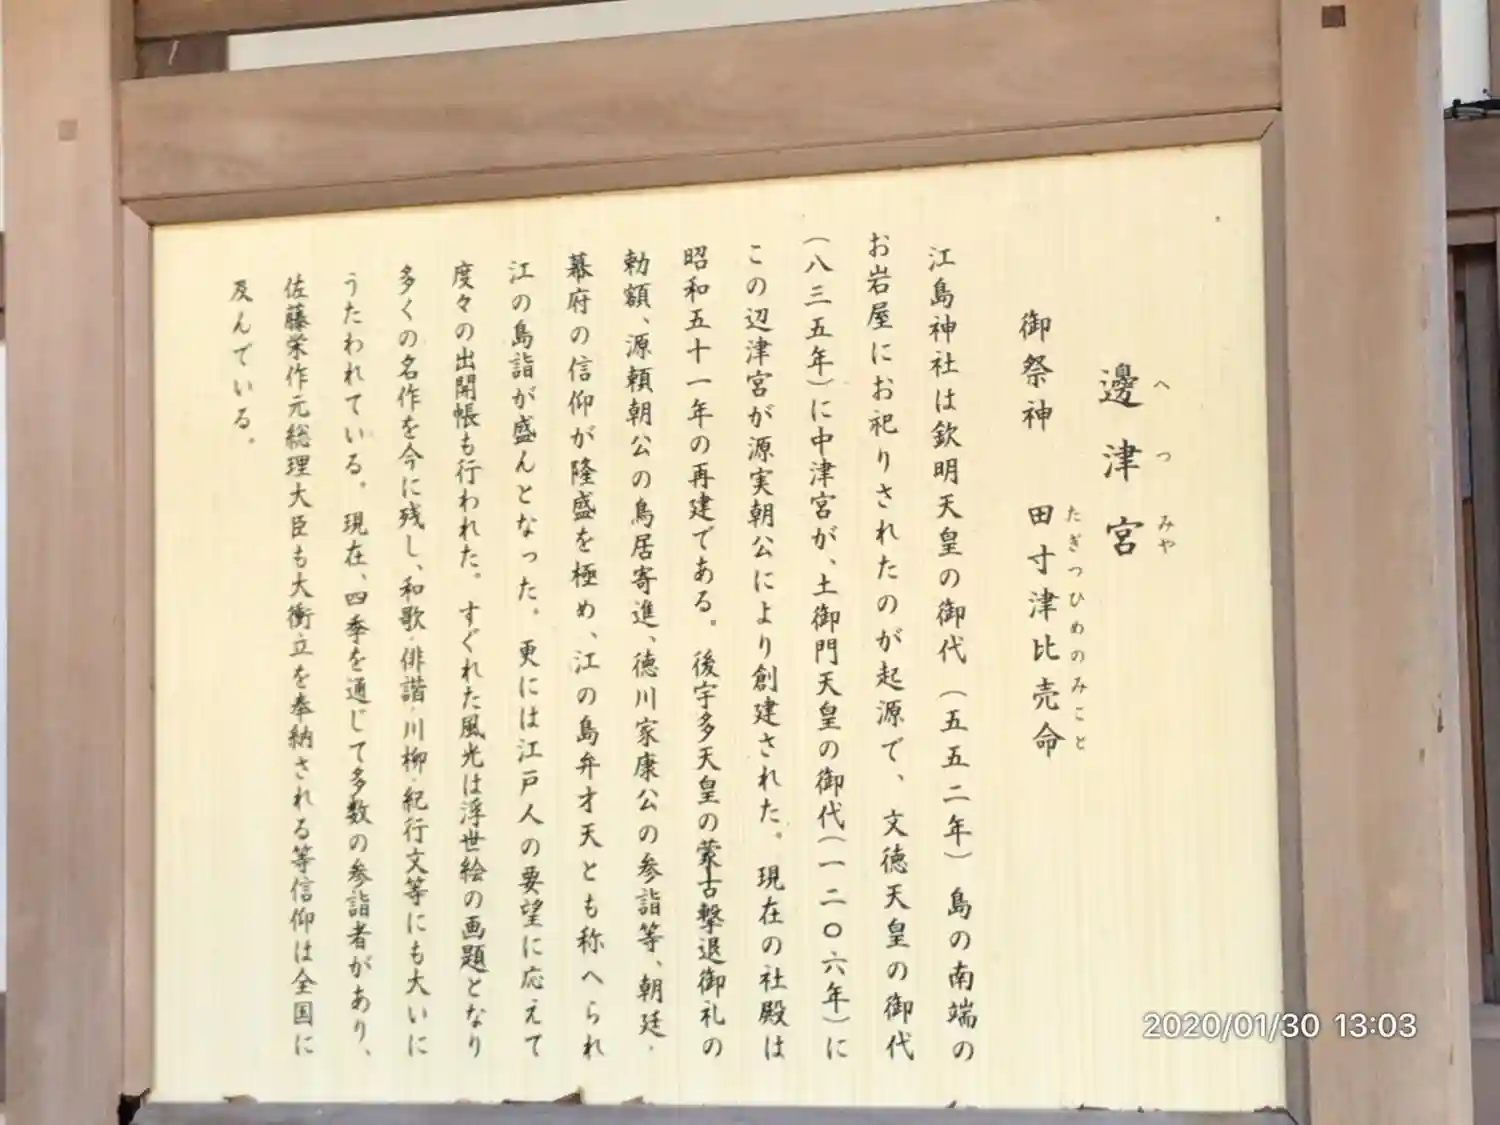 邊津宮
へつみや
御祭神　田寸津比売命
たぎつひめのみこと
江島神社は欽明天皇の御代（五五二年）島の南端の
お岩屋にお祀りされたのが起源で、文徳天皇の御代
（八三五年）に中津宮が、土御門天皇の御代（一二〇六年）に
この辺津宮が源実朝公により創建された。現在の社殿は
昭和五十一年の再建である。後宇多天皇の蒙古撃退御礼の
勅額、源頼朝公の鳥居寄進、徳川家康公の参詣等、朝廷・
幕府の信仰が隆盛を極め、江の島弁才天とも称へられ
江の島詣が盛んとなった。更には江戸人の要望に応えて
度々の出開帳も行われた。すぐれた風光は浮世絵の画題となり
多くの名作を今に残し、和歌・俳諧・川柳・紀行文等にも大いに
うたわれている。現在、四季を通じて多数の参詣者があり、
佐藤栄作元総理大臣も大衝立を奉納される等信仰は全国に
及んでいる。
2020/01/30 13:03